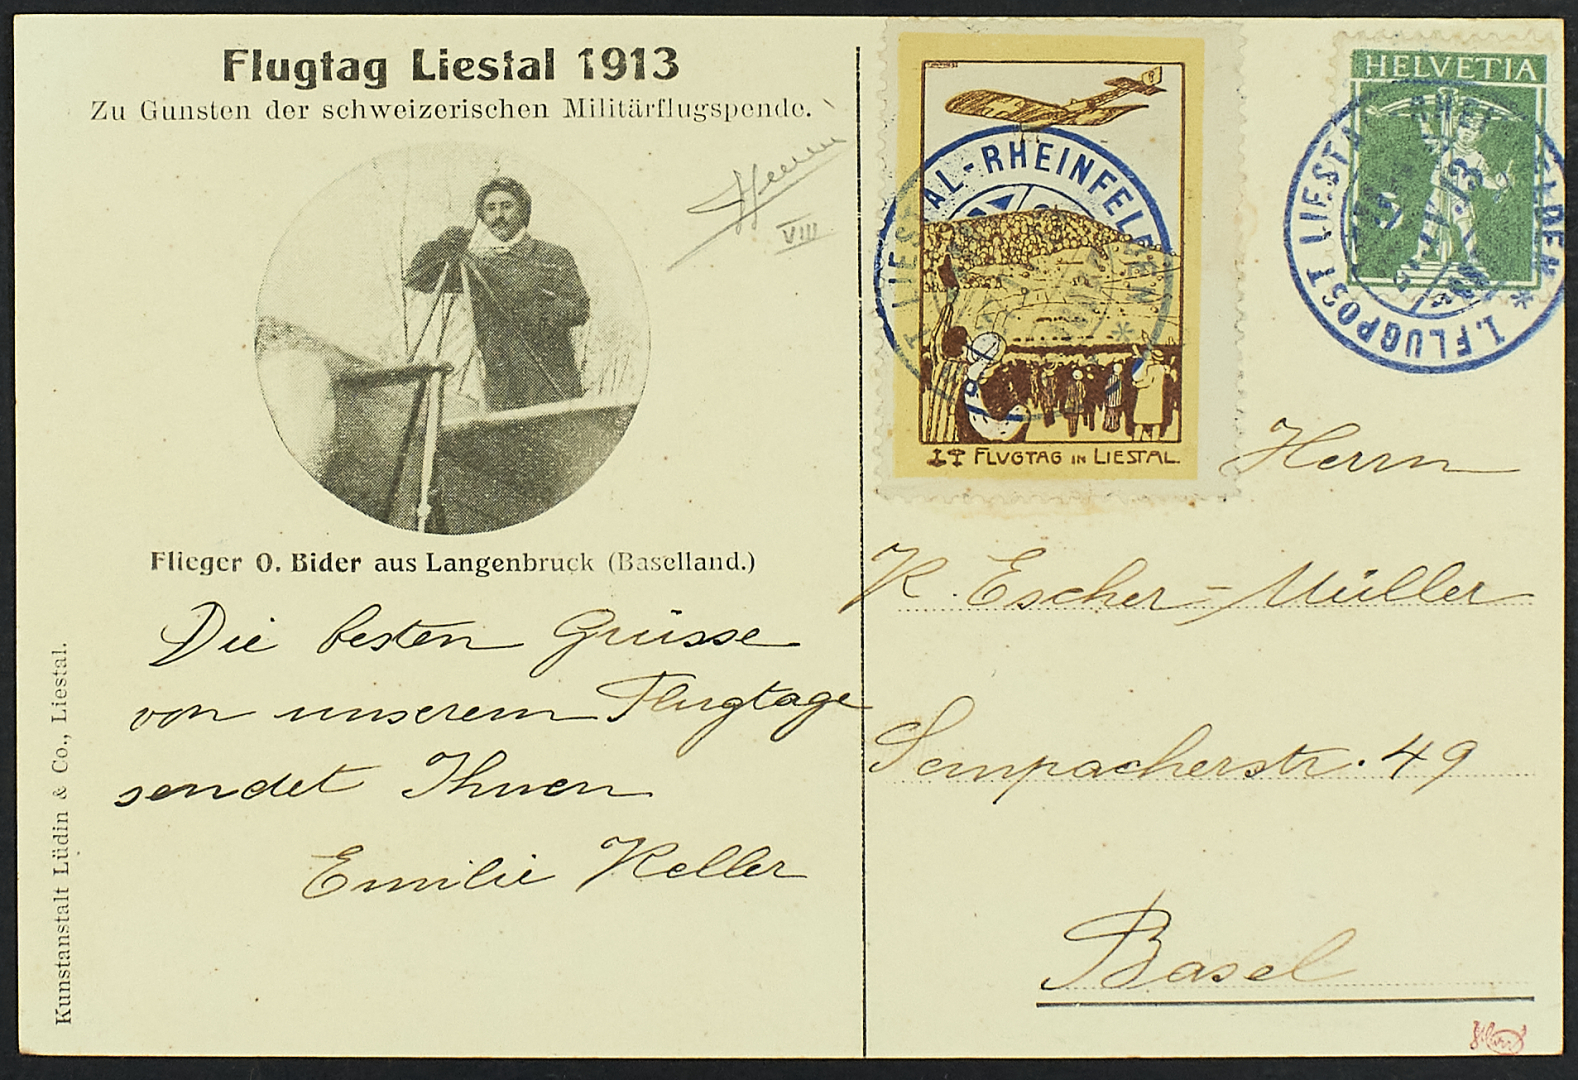 Flugtag Liestal 1913
Zu Gunsten der schweizerischen Militärflugspende.
VIII
Flieger O. Bider aus Langenbruck (Baselland.)
Die besten Grüsse
von unserem Flugtage
sendet Ihnen
Emilie Keller
Kunstanstalt Lüdin & Co., Liestal.
LIESTAL-RHEINFELDEN *
FLUGTAG IN LIESTAL.
HELVETIA
I. FLUGPOST LIESTAL
Herrn
K. Escher-Müller
Sempacherstr. 49
Basel